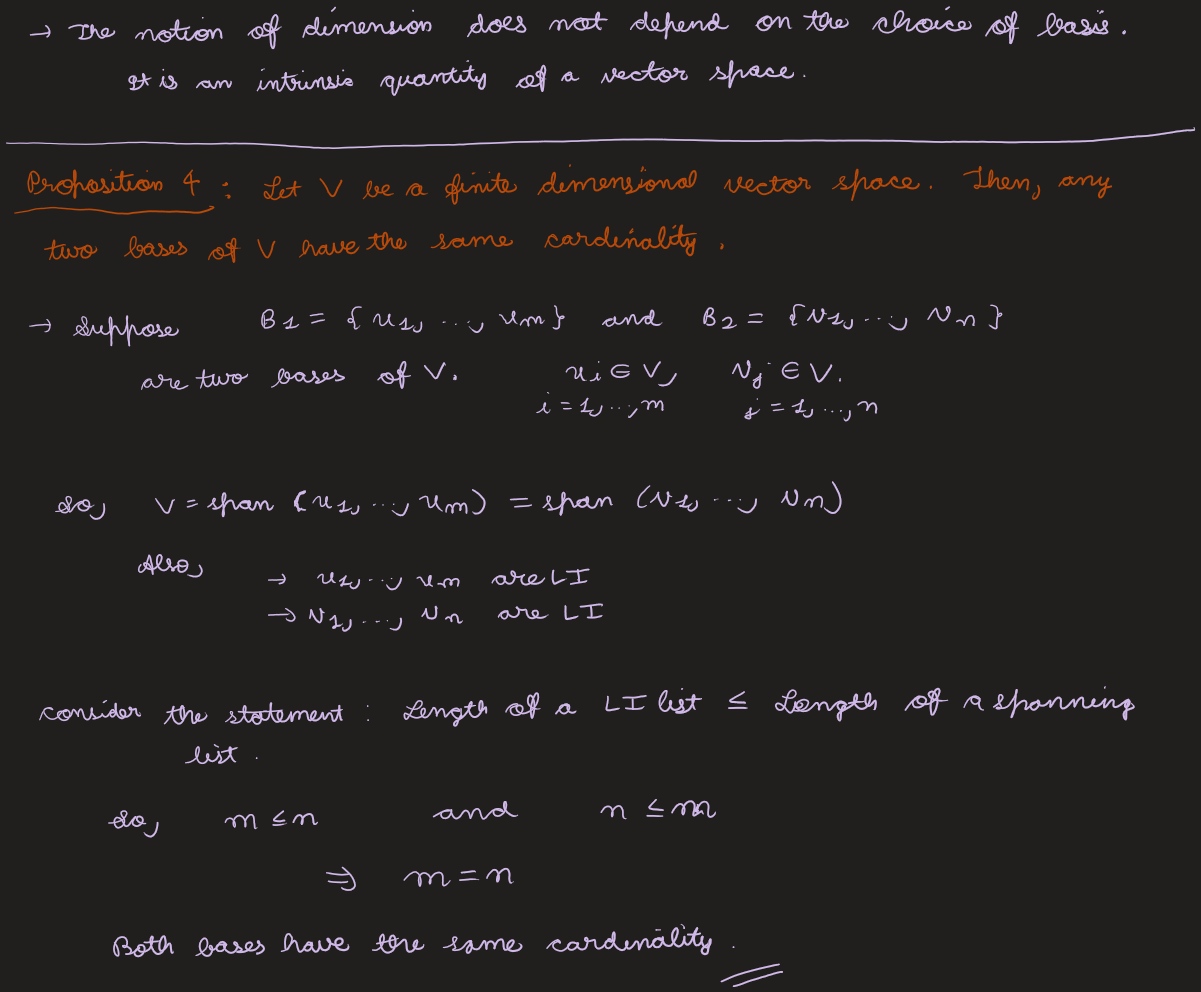 → The notion of dimension does not depend on the choice of basis.
It is an intrinsic quantity of a vector space.
Proposition 4 : Let V be a finite dimensional vector space. Then, any
two bases of V have the same cardinality.
→ Suppose B1 = {u1, ..., um} and B2 = {v1, ..., vn}
are two bases of V. ui ∈ V, vj ∈ V.
i = 1, ..., m j = 1, ..., n
So, V = span (u1, ..., um) = span (v1, ..., vn)
Also,
→ u1, ..., um are LI
→ v1, ..., vn are LI
Consider the statement : Length of a LI list ≤ Length of a spanning
list.
So, m ≤ n and n ≤ m
⇒ m = n
Both bases have the same cardinality.